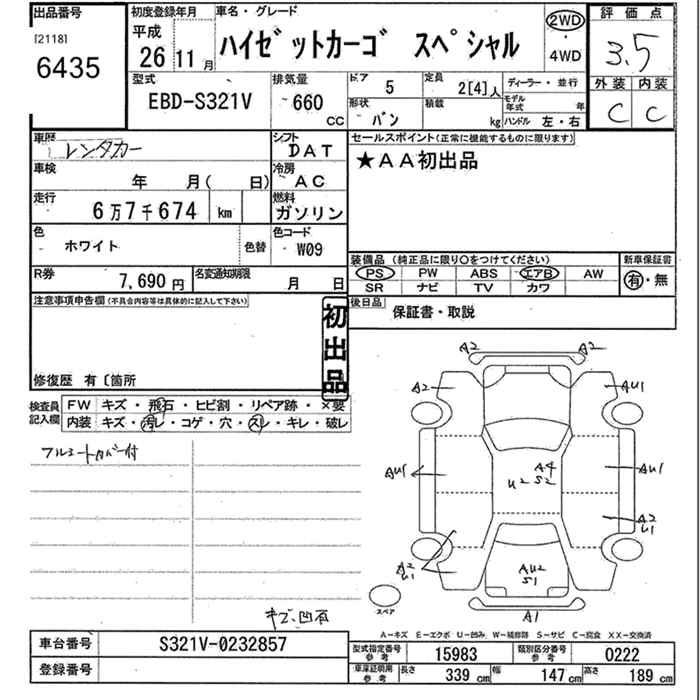 出品番号
[2118]
6435
初度登録年月
平成
26年 11月
車名・グレード
ハイゼットカーゴ スペシャル
2WD
・
4WD
評価点
3.5
外装 内装
C C
型式
EBD-S321V
排気量
660
CC
ドア
5
定員
2[4]人
ディーラー・並行
形状
バン
積載
kg
モデル年式 年
ハンドル 左・右
車歴
レンタカー
シフト
DAT
車検
年 月( 日)
冷房
AC
走行
6万7千674 km
燃料
ガソリン
色
ホワイト
色替
色コード
W09
R券
7,690円
名変通知期限
月 日
セールスポイント(正常に機能するものに限ります)
★AA初出品
装備品(純正品に限り○をつけてください)
PS PW ABS エアB AW
SR ナビ TV カワ
新車保証書
有・無
後日品
保証書・取説
注意事項申告欄(不具合内容等は具体的に記入して下さい)
初出品
修復歴 有〔箇所
検査員記入欄
FW キズ・飛石・ヒビ割・リペア跡・×要
内装 キズ・汚レ・コゲ・穴・スレ・キレ・破レ
フルシートカバー付
キズ、凹有
A2 A2
A2 AU1
AU1 A4 AU1
U2 S2
A2
U1
A2
U1
AU2
S1
スペア
A1
A-キズ E-エクボ U-凹み W-補修跡 S-サビ C-腐食 XX-交換済
車台番号
S321V-0232857
登録番号
型式指定番号
参考
15983
類別区分番号
参考
0222
車庫証明用
参考
長さ 339cm 幅 147cm 高さ 189cm